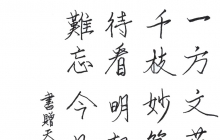 一方文
千枝妙
待看明
難忘今
書贈天